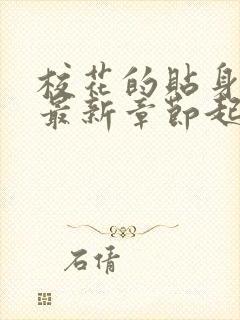 校花的贴身
最新章节起
石倩